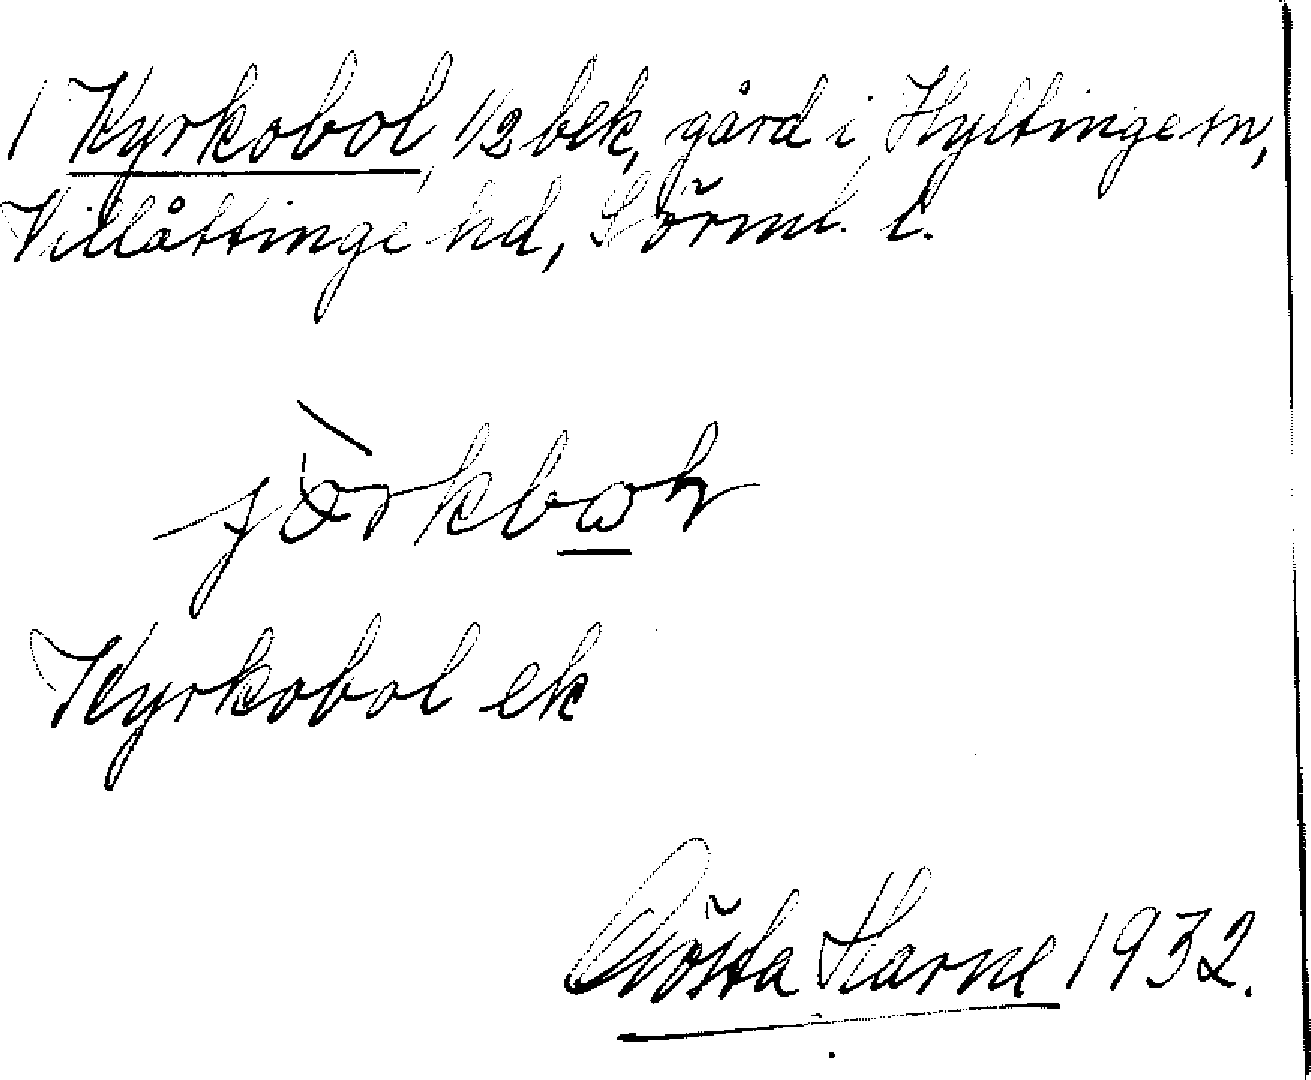 1 Kyrkobol, 1/2 bek, gård i Hyltinge sn,
Villåttinge hd, Sörml. l.
Kyrkobol ek
Gösta Harne 1932.